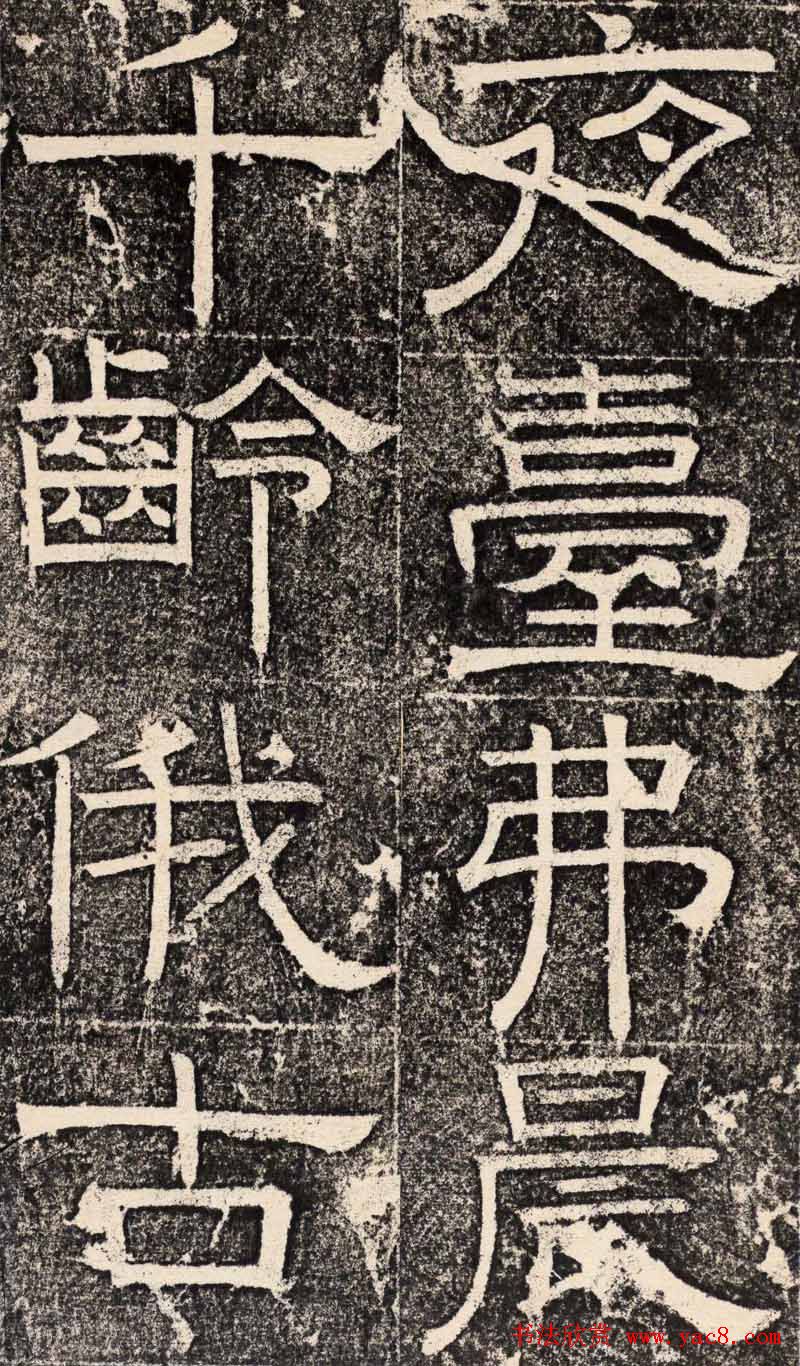 夜臺弗晨
千齡俄古
书法欣赏 www.yac8.com